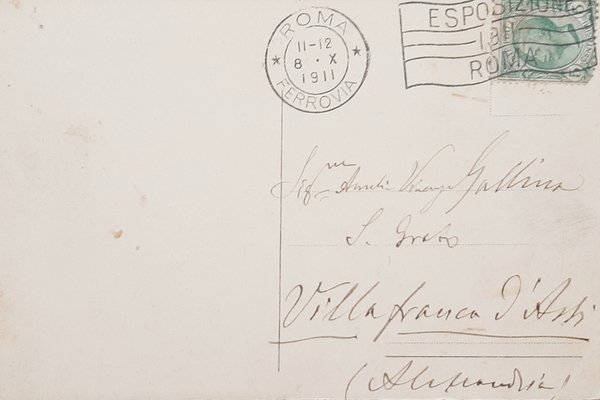 ROMA
11-12
8 · X
1911
FERROVIA
ESPOSIZIONE
1911
ROMA
Gallina
S. Grato
Villafranca d'Asti
(Alessandria)